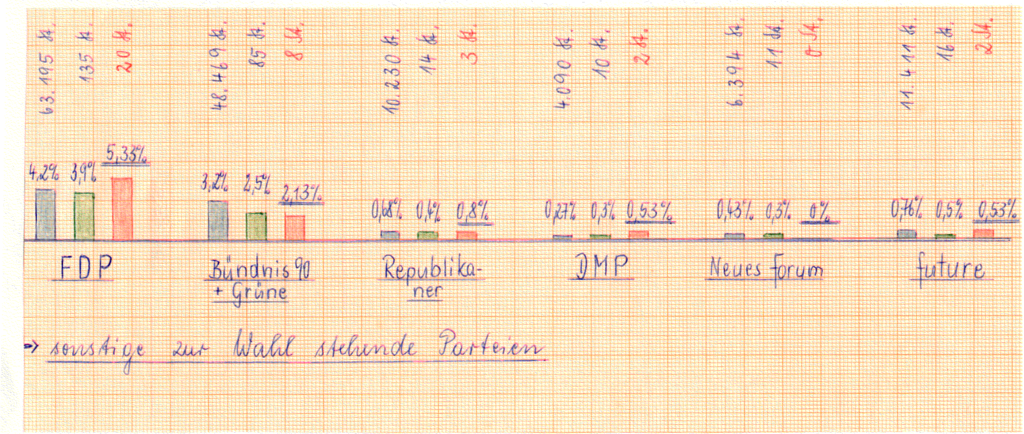 63.195 St. 135 St. 20 St. 48.469 St. 85 St. 8 St. 10.230 St. 14 St. 3 St. 4.090 St. 10 St. 2 St. 6.394 St. 11 St. 0 St. 11.411 St. 16 St. 2 St.
4,2% 3,9% 5,33% 3,2% 2,5% 2,13% 0,68% 0,4% 0,8% 0,27% 0,3% 0,53% 0,43% 0,3% 0% 0,76% 0,5% 0,53%
FDP
Bündnis 90
+ Grüne
Republika-
ner
DMP
Neues Forum
future
→ sonstige zur Wahl stehende Parteien